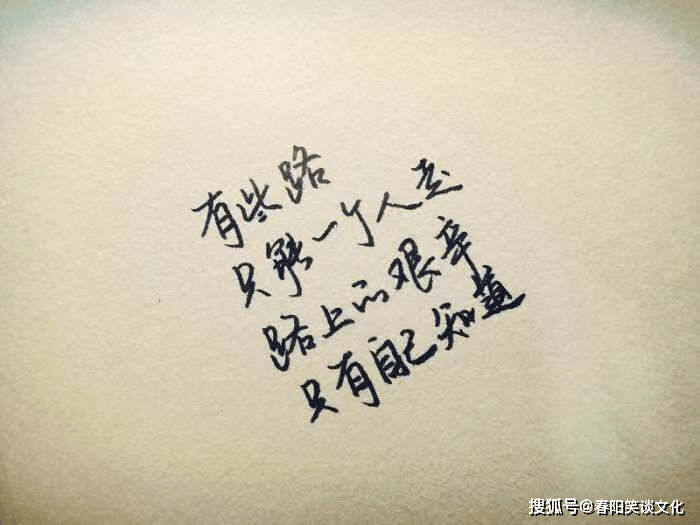 有些路
只能一个人走
路上的艰辛
只有自己知道
搜狐号@春阳笑谈文化